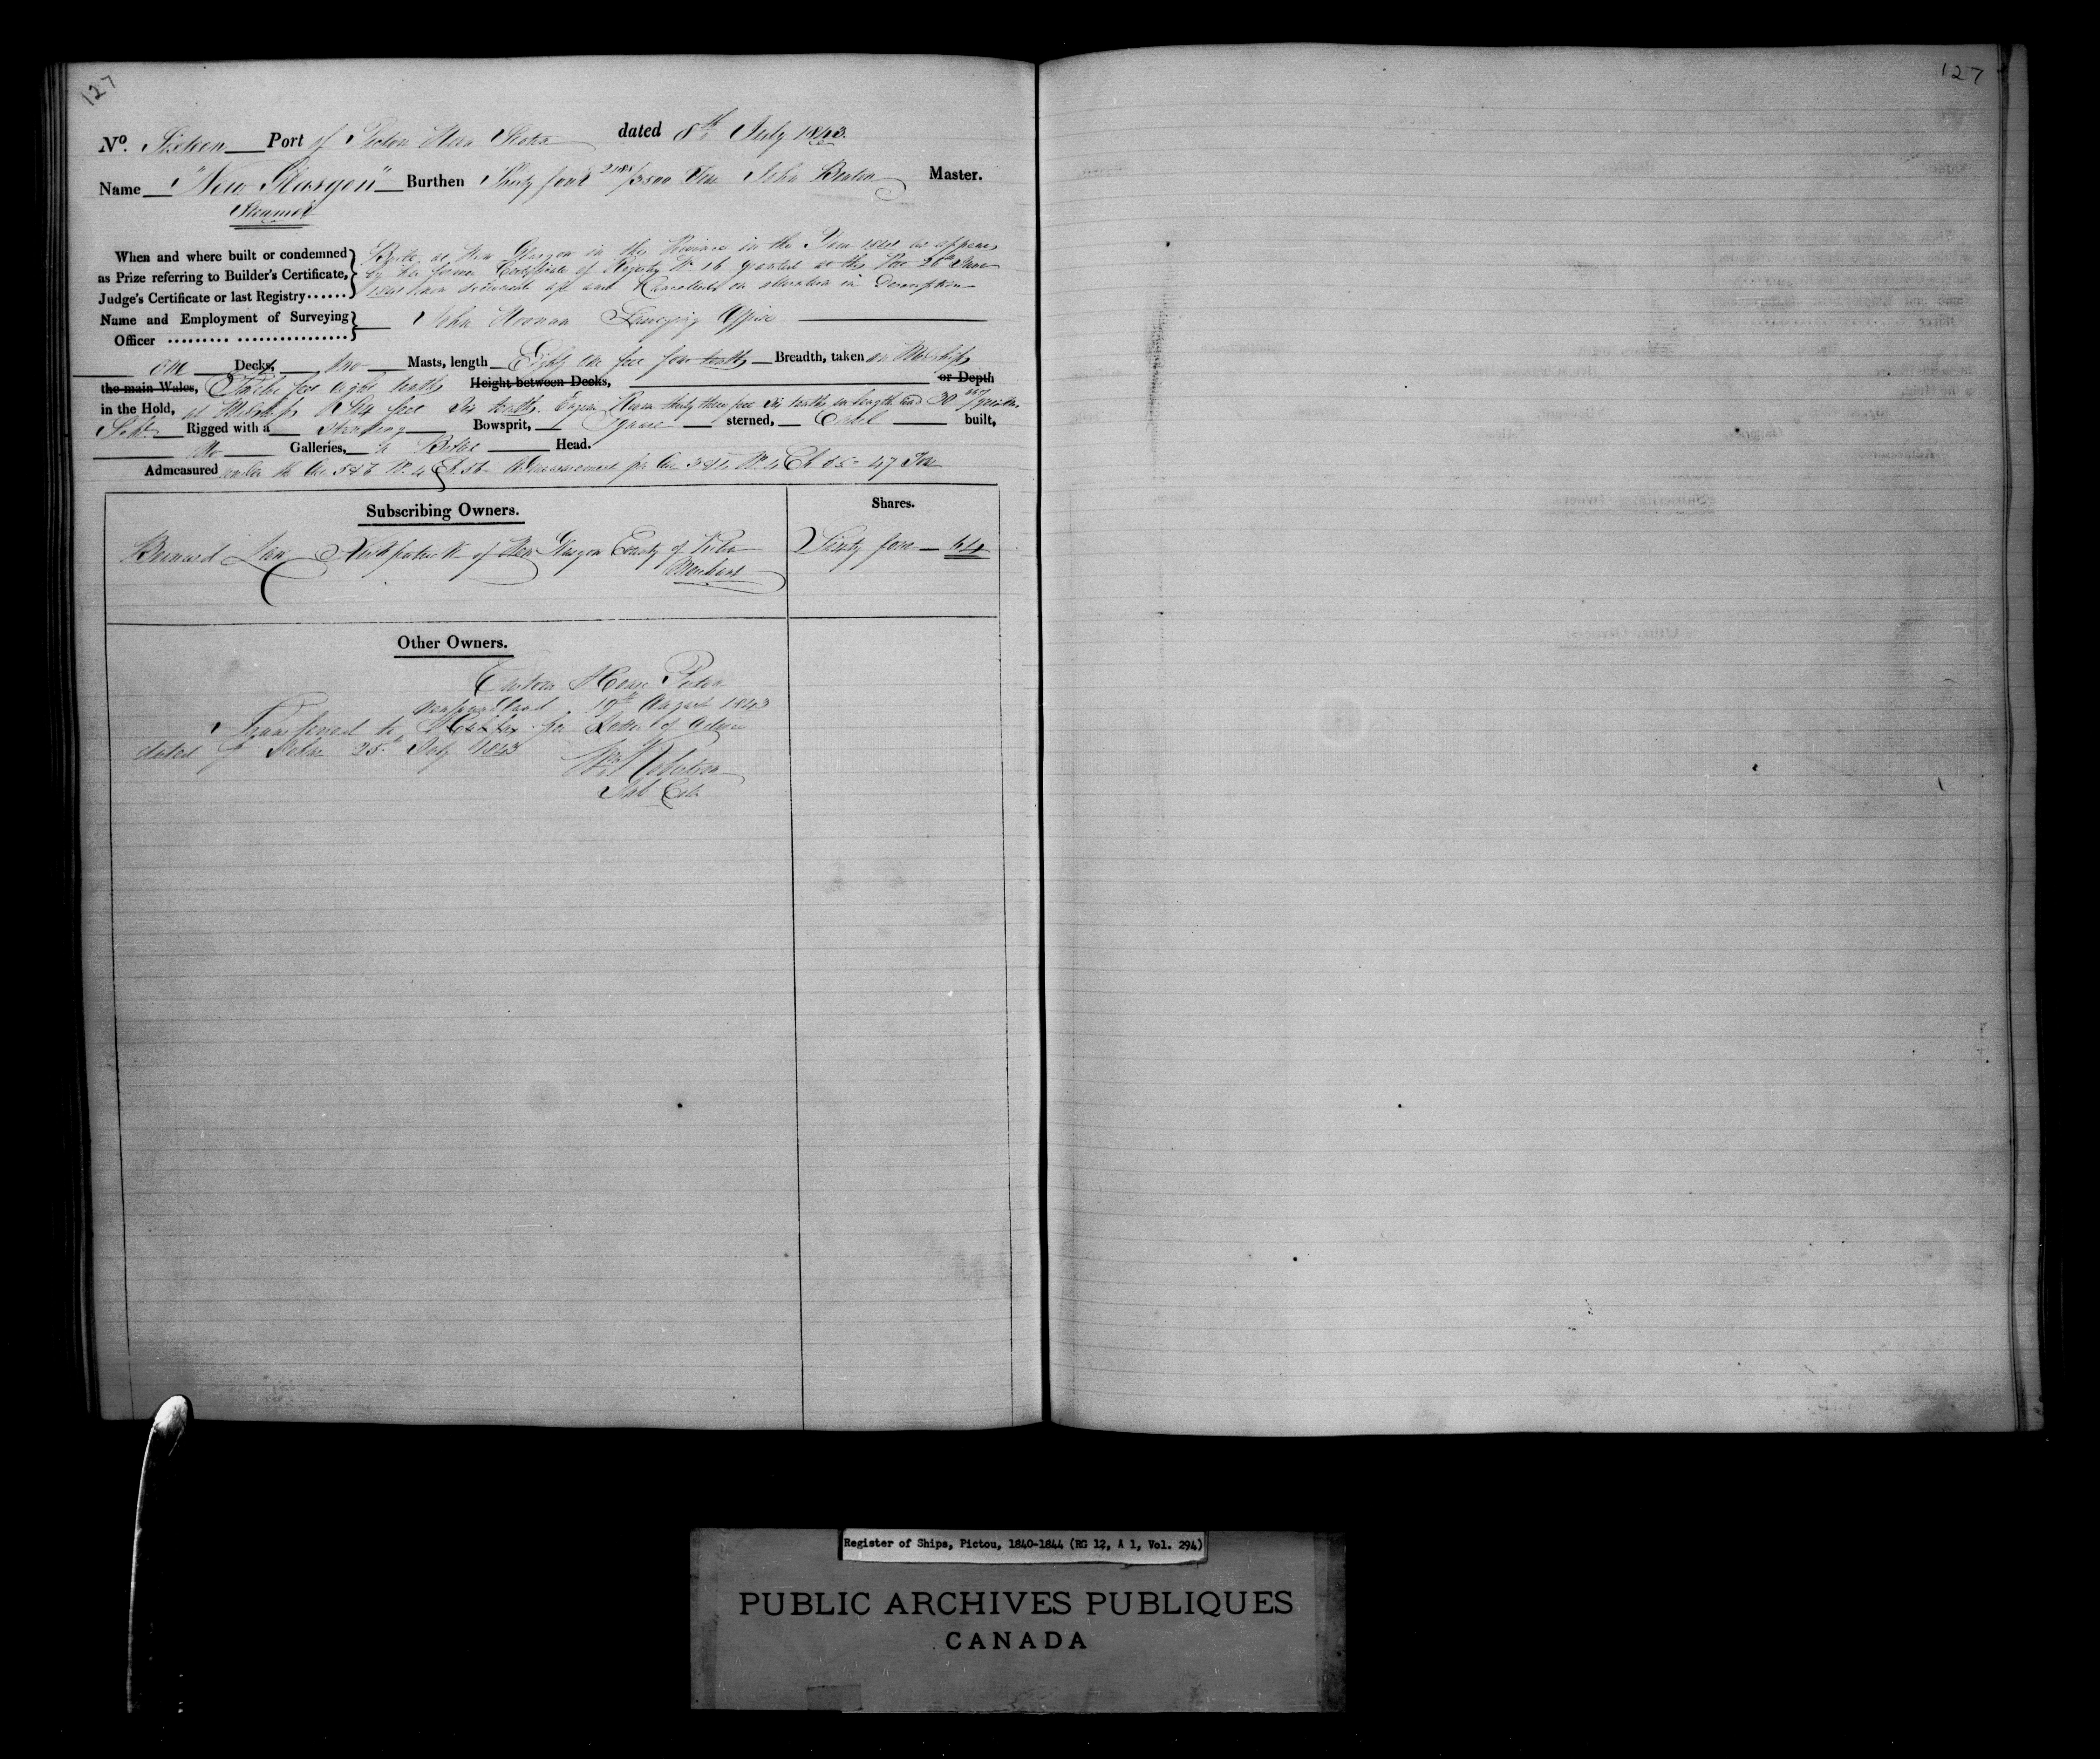 127
127
No. Sixteen Port of Pictou Nova Scotia dated 8th July 1843.
Name "New Glasgow" Burthen Thirty four /3500 Tons John Master.
Steamer
When and where built or condemned
as Prize referring to Builder's Certificate,
Judge's Certificate or last Registry......
Built at New Glasgow in this Province in the Year as appears
by the former Certificate of Registry No. 16 granted at this Port 26th June
delivered up and Cancelled on alteration in Description
Name and Employment of Surveying
Officer ......... ................
John Surveying Officer
One Decks, two Masts, length Eighty one feet four tenths Breadth, taken in Midships
the main Wales, Twelve feet eight tenths Height between Decks, or Depth
in the Hold, at Midships Six feet six tenths. Engine Room thirty three feet six tenths in length and 30
Schr. Rigged with a standing Bowsprit, Square sterned, Carvel built,
No Galleries, a Billet Head.
Admeasured under the Act 5 & 6 W. 4 Ch. 56 Admeasurement per Act 3 & 4 W. 4 Ch 55 - 47 Tons
Subscribing Owners.
Shares.
Bernard Kirkpatrick of New Glasgow County of Pictou
Merchant
Sixty four 64
Other Owners.
Custom House Pictou
Newfoundland 19th August 1843
Transferred to Halifax per Letter of Advice
dated 25th July 1843
Wm Robertson
Sub Col.
Register of Ships, Pictou, 1840-1844 (RG 12, A 1, Vol. 294)
PUBLIC ARCHIVES PUBLIQUES
CANADA